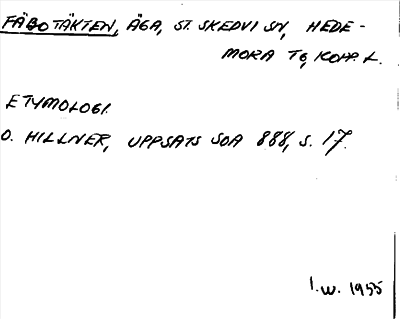 FÄBOTÄKTEN, ÄGA, ST. SKEDVI SN, HEDE-
MORA TG, KOPP. L.
ETYMOLOGI.
O. HILLNER, UPPSATS SOA 888, S. 17.
I.W. 1955